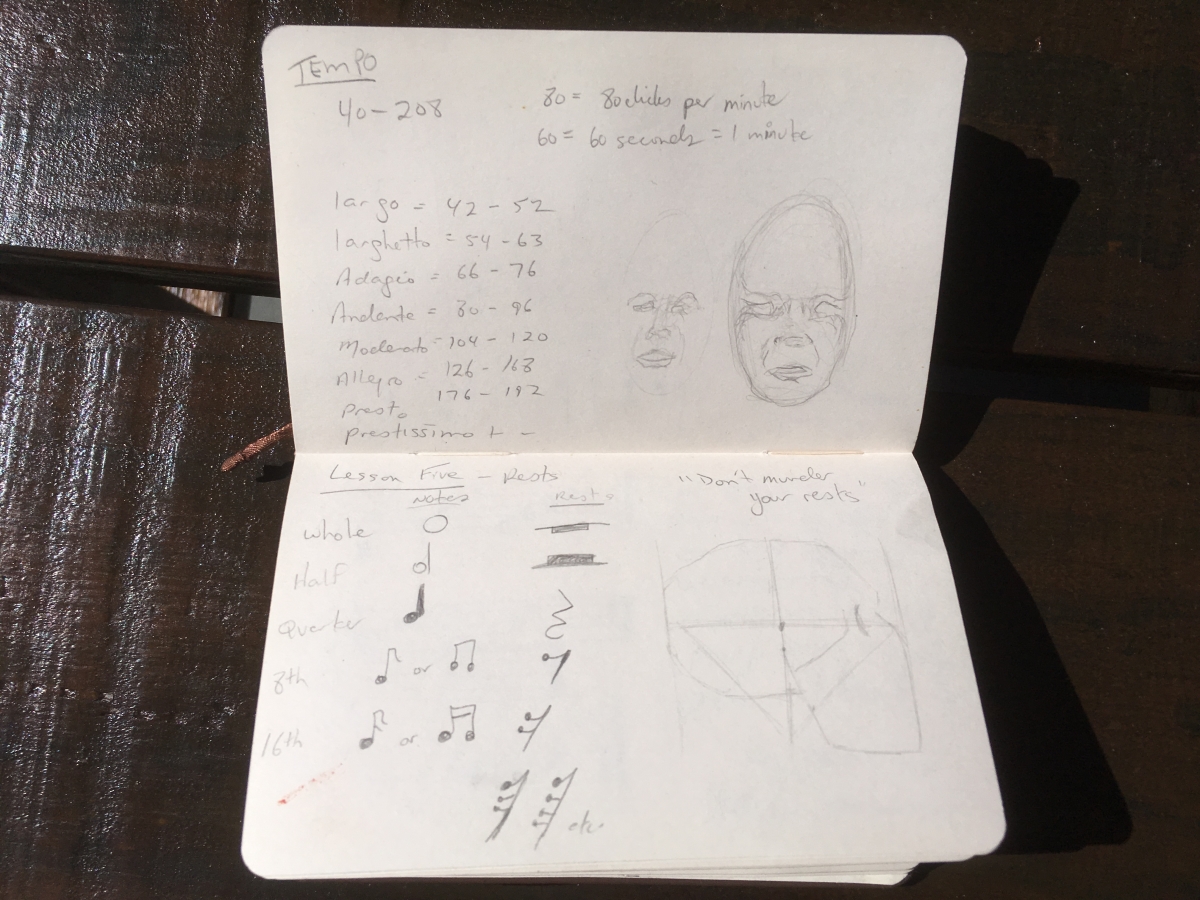 TEMPO
40-208
80 = 80 clicks per minute
60 = 60 seconds = 1 minute
largo = 42 - 52
larghetto = 54 - 63
Adagio = 66 - 76
Andente = 80 - 96
Moderato = 104 - 120
Allegro = 126 - 168
Presto 176 - 192
prestissimo + -
Lesson Five - Rests
"Don't murder
your rests"
Notes Rests
Whole
Half
Quarter
8th or
16th or
etc.